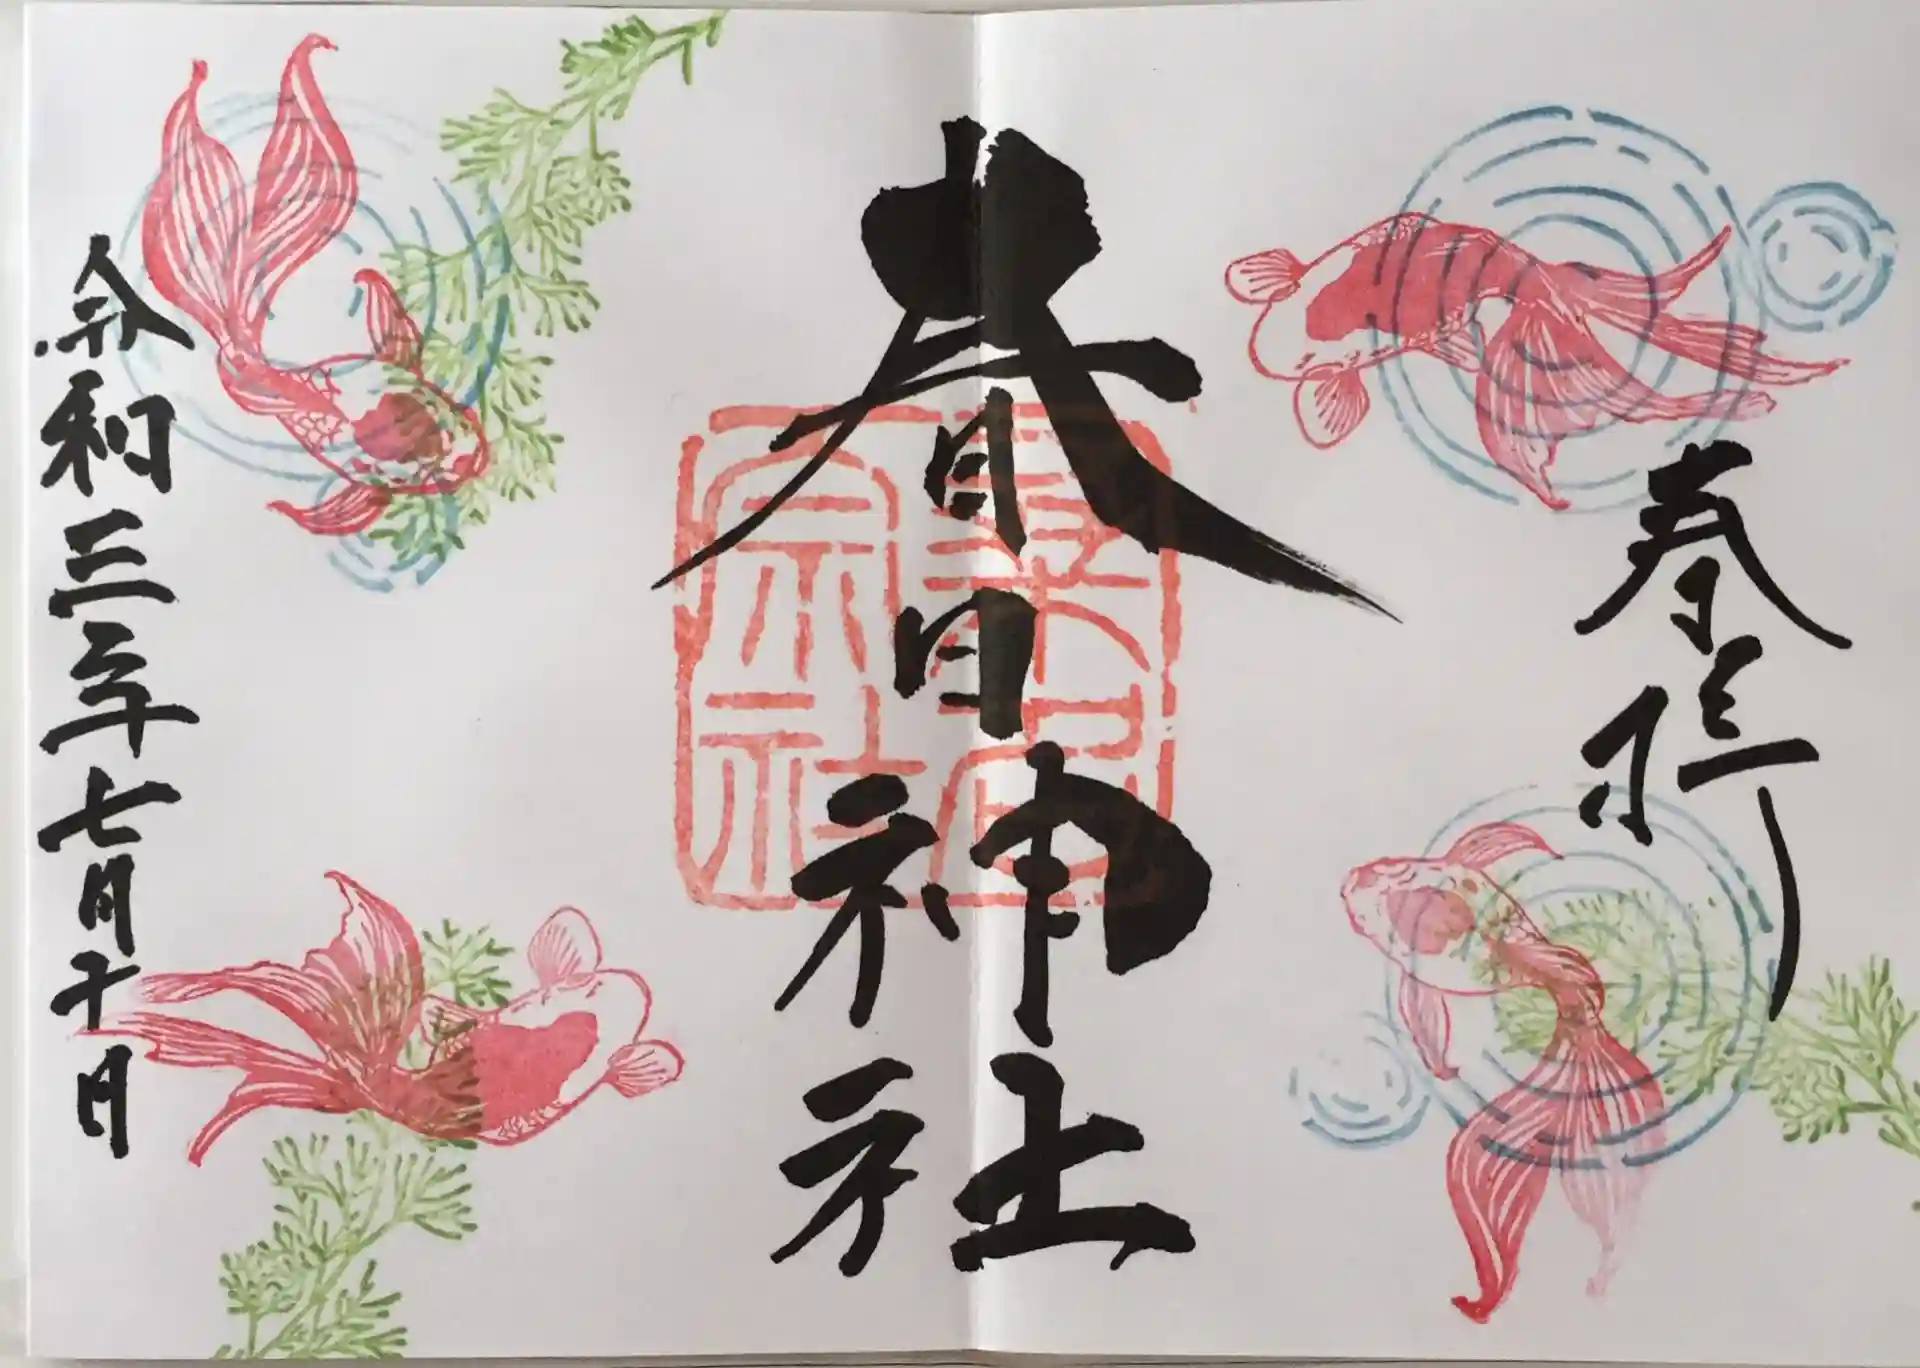 奉拝
春日神社
桑名宗社
令和三年七月十日